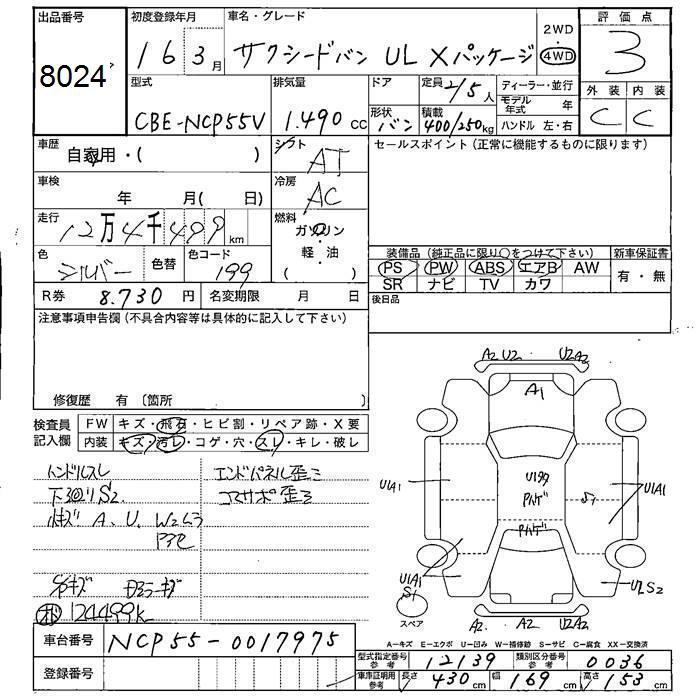 出品番号 初度登録年月 車名・グレード 2WD 評価点
8024 16 3月 サクシードバン UL Xパッケージ ・ 4WD 3
型式 排気量 ドア 定員 2/5人 ディーラー・並行 外装 内装
CBE-NCP55V 1.490 cc 形状 バン 積載 400/250kg モデル年式 年 C C
ハンドル 左・右
車歴 自家用・( ) シフト AT セールスポイント(正常に機能するものに限ります)
車検 年 月( 日) 冷房 AC
走行 12万4千499km 燃料 ガソリン
軽・油
( )
色 シルバー 色替 色コード 199
装備品(純正品に限り〇をつけて下さい) 新車保証書
PS PW ABS エアB AW 有・無
SR ナビ TV カワ
R券 8.730円 名変期限 月 日 後日品
注意事項申告欄(不具合内容等は具体的に記入して下さい)
修復歴 有 〔箇所
検査員 FW キズ・飛石・ヒビ割・リペア跡・X要
記入欄 内装 キズ・汚レ・コゲ・穴・スレ・キレ・破レ
ハンドルスレ エンドパネル歪ミ
下回りS2 コアサポ歪ミ
A、U、W2ムラ
124499k
A2 U2 U2 A2
A1
U1A1 U1 S1 U1A1
U1A1 S1 U1S2
スペア A2 A2 U2A2
A-キズ E-エクボ U-凹み W-補修跡 S-サビ C-腐食 XX-交換済
車台番号 NCP55-0017975
登録番号
型式指定番号参考 12139 類別区分番号参考 0036
車庫証明用参考 長さ 430cm 幅 169cm 高さ 153cm